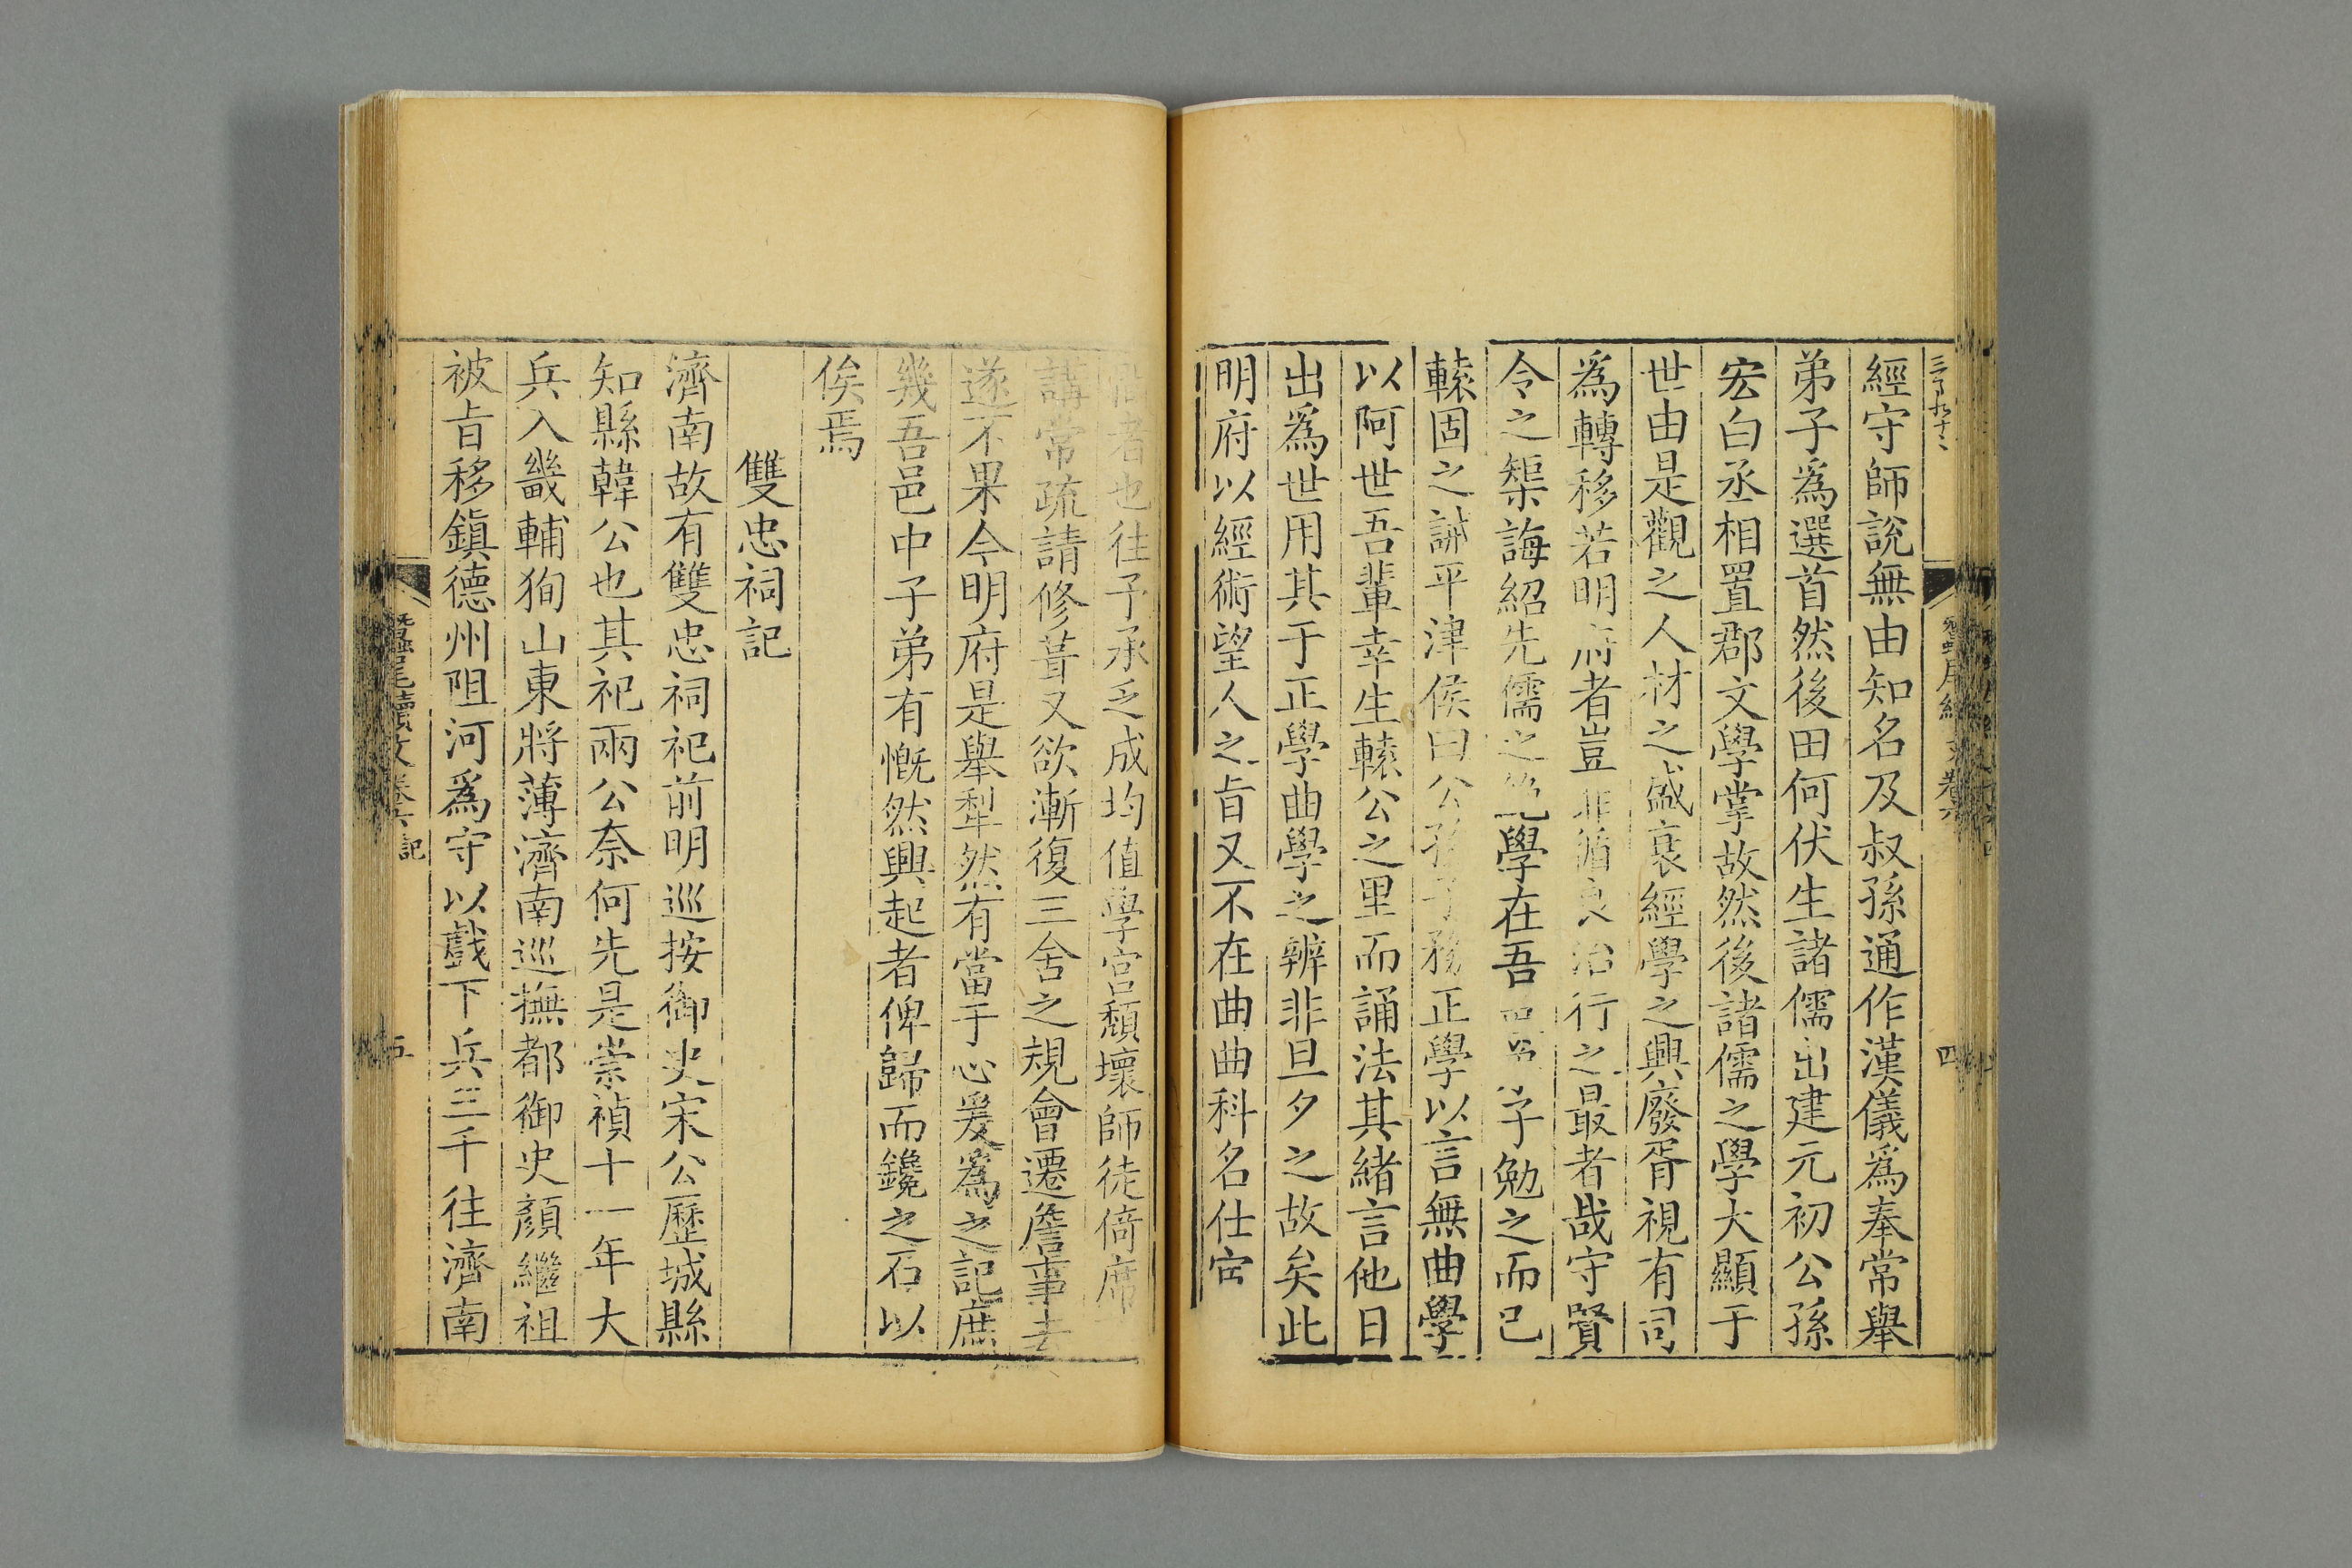 經守師說無由知名及叔孫通作漢儀爲奉常舉
弟子爲選首然後田何伏生諸儒出建元初公孫
宏白丞相置郡文學掌故然後諸儒之學大顯于
世由是觀之人材之盛衰經學之興廢胥視有司
爲轉移若明府者豈非循良治行之最者哉守賢
令之榘誨紹先儒之絶學在吾 子勉之而已
轅固之誡平津侯曰公孫子務正學以言無曲學
以阿世吾輩幸生轅公之里而誦法其緒言他日
出爲世用其于正學曲學之辨非旦夕之故矣此
明府以經術望人之旨又不在曲曲科名仕宦
者也往予承乏成均值學宮頽壞師徒倚席
講常疏請修葺又欲漸復三舍之規會遷詹事去
遂不果今明府是舉犁然有當于心爰爲之記庶
幾吾邑中子弟有慨然興起者俾歸而鑱之石以
俟焉
雙忠祠記
濟南故有雙忠祠祀前明巡按御史宋公歷城縣
知縣韓公也其祀兩公奈何先是崇禎十一年大
兵入畿輔狥山東將薄濟南巡撫都御史顔繼祖
被旨移鎭德州阻河爲守以戲下兵三千往濟南
蠶尾續文卷六 記
五